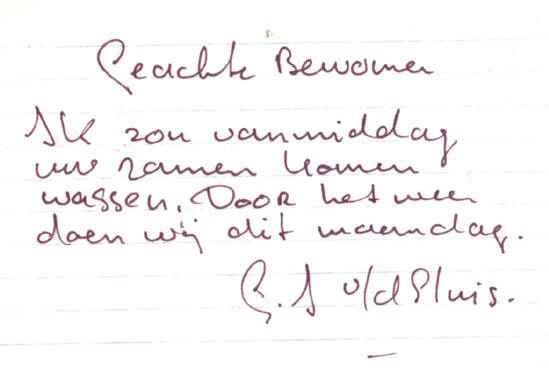 Geachte Bewoner
Ik zou vanmiddag
uw ramen komen
wassen. Door het weer
doen wij dit maandag.
G. J v/d Sluis.